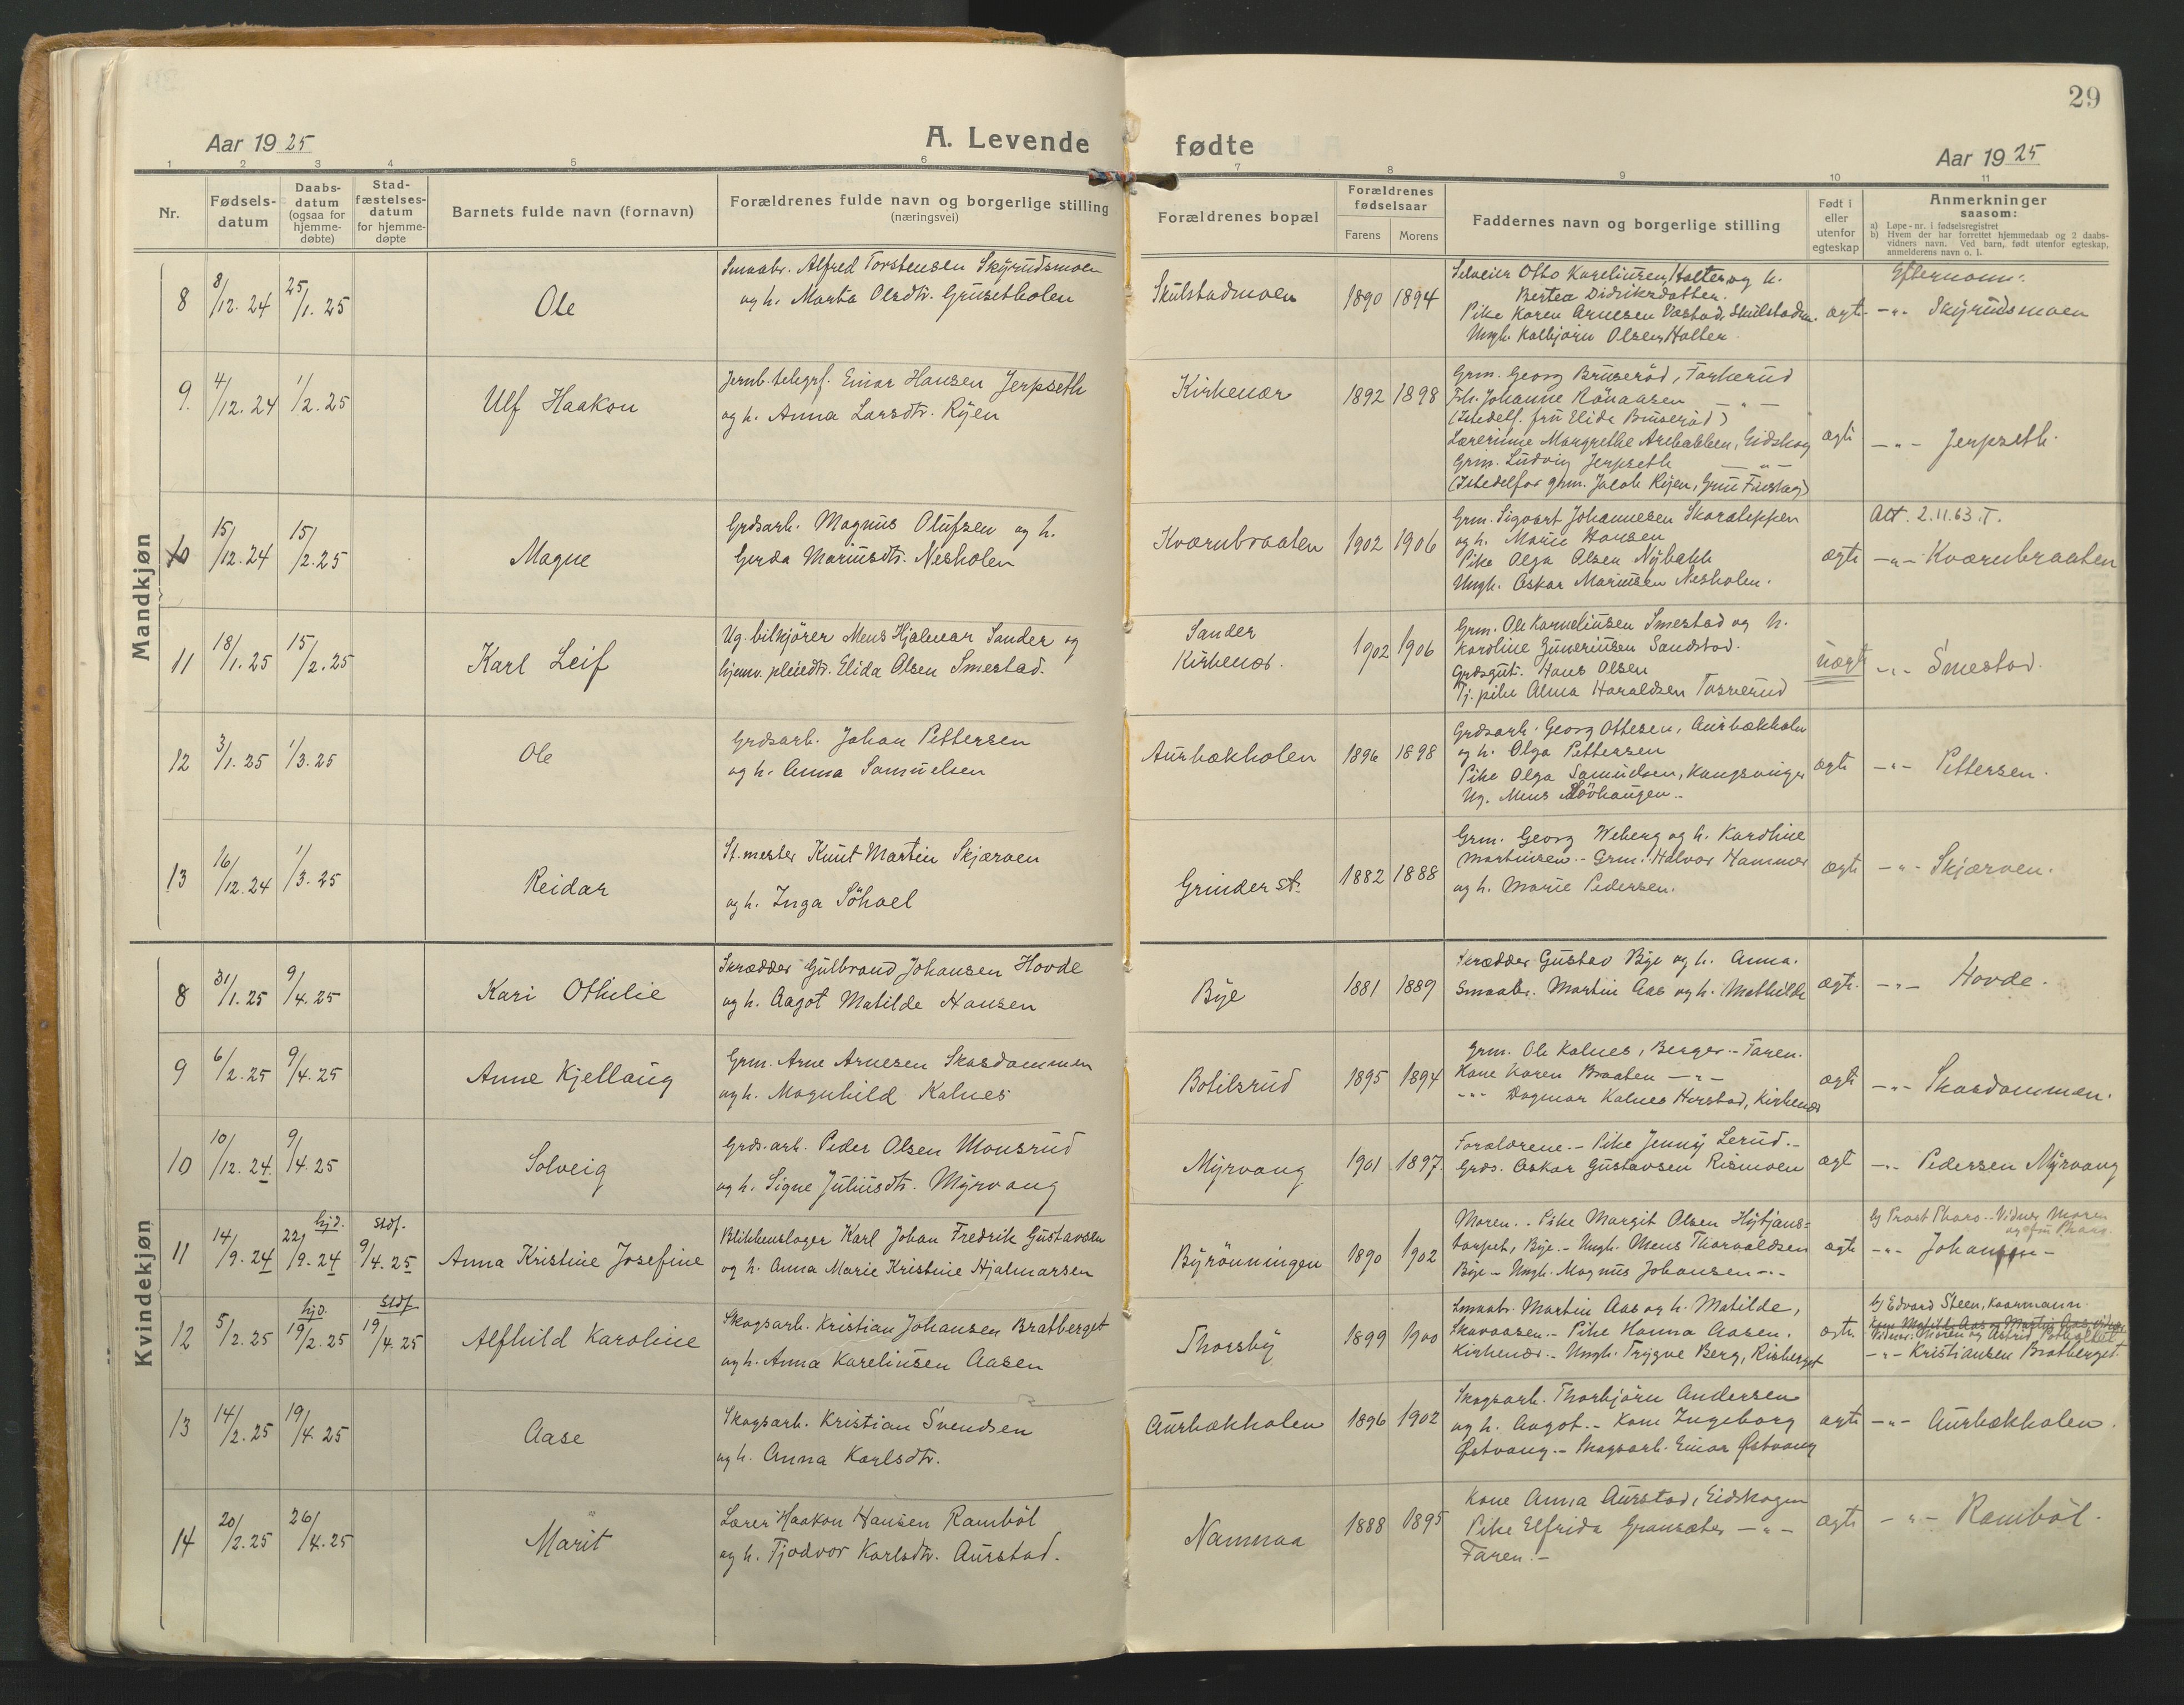 29
Aar 1925
A. Levende fødte
Aar 1925
1 2 3 4 5 6 7 8 9 10 11
Nr.
Fødsels-
datum
Daabs-
datum
(ogsaa for
hjemme-
døbte)
Stad-
fæstelses-
datum
for hjemme-
døpte
Barnets fulde navn (fornavn)
Forældrenes fulde navn og borgerlige stilling
(næringsvei)
Forældrenes bopæl
Forældrenes
fødselsaar
Farens Morens
Faddernes navn og borgerlige stilling
Født i
eller
utenfor
egteskap
Anmerkninger
saasom:
a) Løpe-nr. i fødselsregistret
b) Hvem der har forrettet hjemmedaab og 2 daabs-
vidners navn. Ved barn, født utenfor egteskap,
anmelderens navn o. l.
Mandkjøn
8 8/12. 24 25/1. 25
Ole
Smaabr. Alfred Torstensen Skyrudsmoen
og h. Marta Olsdtr. Grusetholen
Skulstadmoen
1890 1894
Selveier Otto Kareliusen Halter og h.
Bertea Didriksdatter.
Pike Karen Arnesen Vastad, Skulstadm.
Ungk. Kolbjørn Olsen Halter.
ægt.
Efternavn:
-"- Skyrudsmoen
9. 4/12. 24 1/2. 25
Ulf Haakon
Jernb. telegrf. Einar Hansen Jerpseth
og h. Anna Larsdtr. Ryen
Kirkenær
1892 1898
Grm. Georg Bruserød, Tarkerud
Frk. Johanne Rönaasen -"-
(Istedetf. fru Elida Bruserød)
Lærerinne Margrethe Arebakken, Eidskog
Grm. Ludvig Jerpseth -"-
(Istedetfor grm. Jacob Ryen, Grue Finskog)
ægte
-"- Jerpseth.
10 15/12. 24 15/2. 25
Magne
Grdsarb. Magnus Olufsen og h.
Gerda Mariusdtr. Nesholen
Kværnbraaten
1902 1906
Grm. Sigvart Johannesen Skaraleppen
og h. Marie Hansen
Pike Olga Olsen Nybakk
Ungk. Oskar Mariusen Nesholen.
ægte
Att. 2.11.63. T.
-"- Kværnbraaten
11 18/1. 25 15/2. 25
Karl Leif
Ug. bilkjører Mens Hjalmar Sander og
hjemv. pleiedtr. Elida Olsen Smestad.
Sander
Kirkenær.
1902 1906
Grm. Ole Korneliusen Smestad og h.
Karoline Guneriusen Sandstad.
Grdsgut. Hans Olsen
Tj. pike Alma Haraldsen Tasnerud
uægte
-"- Smestad.
12 3/1. 25 1/3. 25
Ole
Grdsarb. Johan Pettersen
og h. Anna Samuelsen
Aurbækholen
1896 1898
Grdsarb. Georg Ottesen, Aurbækholen
og h. Olga Pettersen
Pike Olga Samuelsen, Kongsvinger
Ug. Mens Løvhaugen.-
ægte
-"- Pettersen.
13 16/12. 24 1/3. 25
Reidar
St.mester Knut Martin Skjærven
og h. Inga Søhoel
Grinder st.
1882 1888
Grm. Georg Weberg og h. Karoline
Martinsen.- Grm. Halvor Hammer
og h. Marie Pedersen.
ægte
-"- Skjærven.
Kvindekjøn
8 31/1. 25 9/4. 25
Kari Othilie
Skrædder Gulbrand Johansen Hovde
og h. Aagot Matilde Hansen
Bye
1881 1889
Skrædder Gustav Bye og h. Anna.
Smaabr. Martin Aas og h. Mathilde
ægte.
-"- Hovde.
9 6/2. 25 9/4. 25
Anne Kjellaug
Grm. Arne Arnesen Skasdammen
og h. Magnhild Kalnes
Botilsrud
1895 1894
Grm. Ole Kalnes, Berger.- Faren.
Kone Karen Braaten -"-
-"- Dagmar Kalnes Herstad, Kirkenær
ægte
-"- Skasdammen.
10 10/12. 24. 9/4. 25
Solveig
Grds. arb. Peder Olsen Monsrud
og h. Signe Juliusdtr. Myrvang
Myrvang
1901 1897.
Forældrene.- Pike Jenny Lerud.-
Grds. Oskar Gustavsen Rismoen
ægt
-"- Pedersen Myrvang
11 14/9. 24 hjd. 22/9. 24 stdf. 9/4. 25
Anna Kristine Josefine
Blikkenslager Karl Johan Fredrik Gustavsen
og h. Anna Marie Kristine Hjalmarsen
Byrønningen
1890 1902
Moren.. Pike Margit Olsen Hytjans-
torpet, Bye.- Ungk. Mens Thorvaldsen
Bye- Ungk. Magnus Johansen -"-
ægte
b) Prost Pharo.- Vidner Moren
og fru Pharo.
-"- Johansen-
12 5/2. 25 hjd. 19/2. 25 stdf 19/4. 25
Alfhild Karoline
Skogsarb. Kristian Johansen Bratberget
og h. Anna Kareliusen Aasen
Thorsby
1899 1900
Smaabr. Martin Aas og h. Matilde,
Skavaasen.- Pike Hanna Aasen.
Kirkenær.- Ungk. Trygve Berg, Risberget
ægte.
b) Edvard Steen, Kaarmann.
Kone Matilde Aas og Martin Aas, vidner
Vidner: Moren og Astrid
-"- Kristiansen Bratberget.
13 14/2. 25 19/4. 25
Aase
Skogsarb. Kristian Svendsen
og h. Anna Karlsdtr.
Aurbækholen
1896 1902
Skogsarb. Thorbjørn Andersen
og h. Aagot.- Kone Ingeborg
Østvang.- Skogsarb. Einar Østvang
ægte
-"- Aurbækholen.
14 20/2. 25 26/4. 25
Marit
Lærer Haakon Hansen Rambøl
og h. Tjodvor Karlsdtr. Aurstad.
Namnaa
1888 1895
Kone Anna Aurstad, Eidskogen
Pike Elfrida Gransæter -"-
Faren.-
ægte
-"- Rambøl.